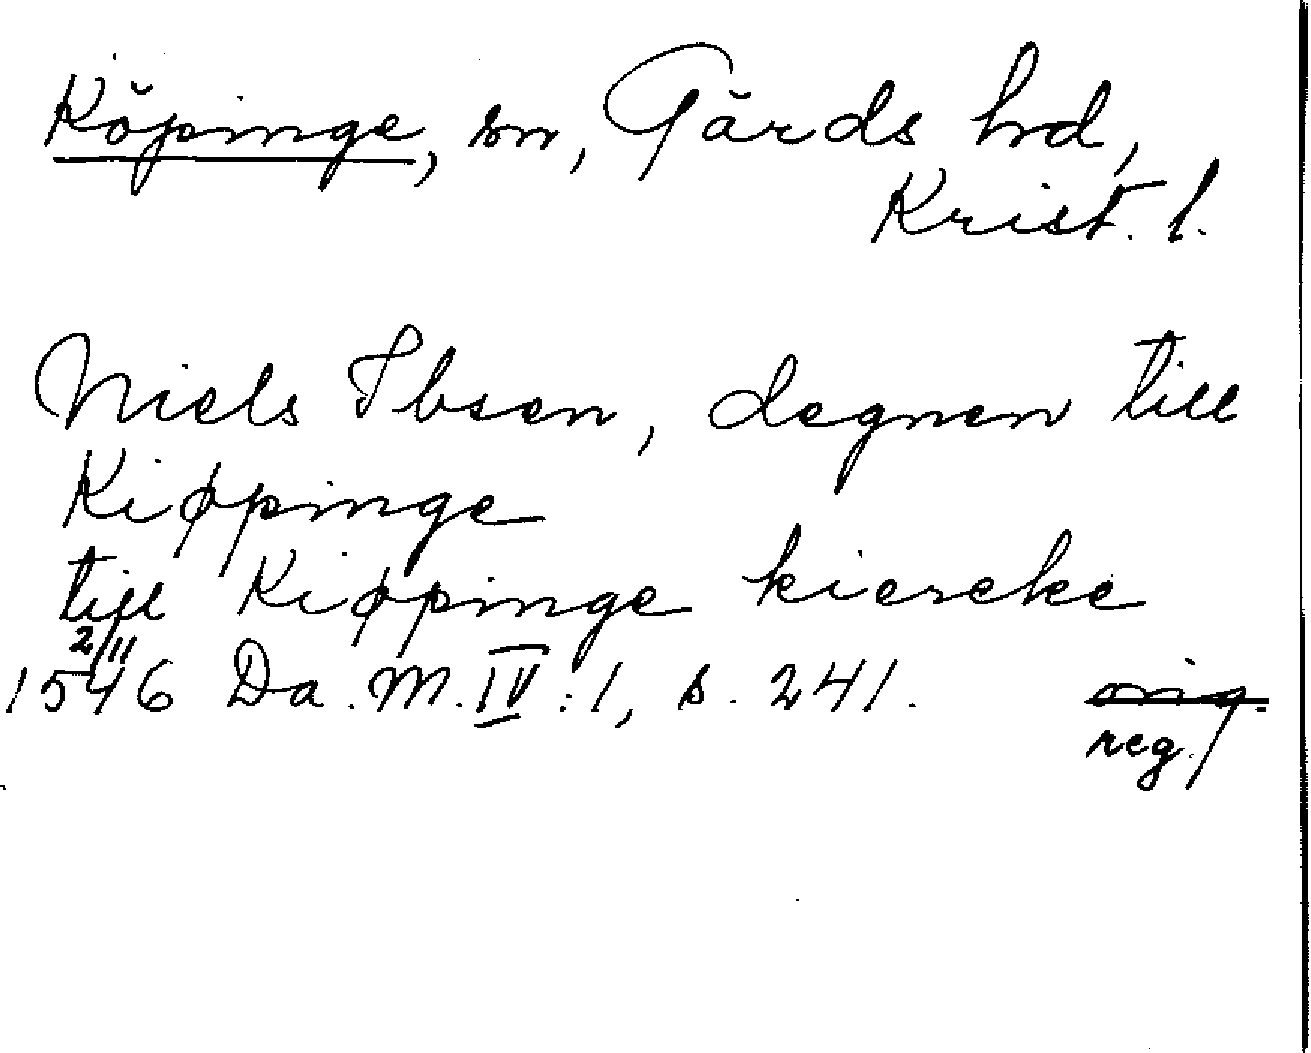 Köpinge, sn, Gärds hd,
Krist. l.
Niels Ibsen, degnen till
Kiøpinge
till Kiøpinge kiercke
2/11
1546 Da. M. IV:1, s. 241. orig.
reg.